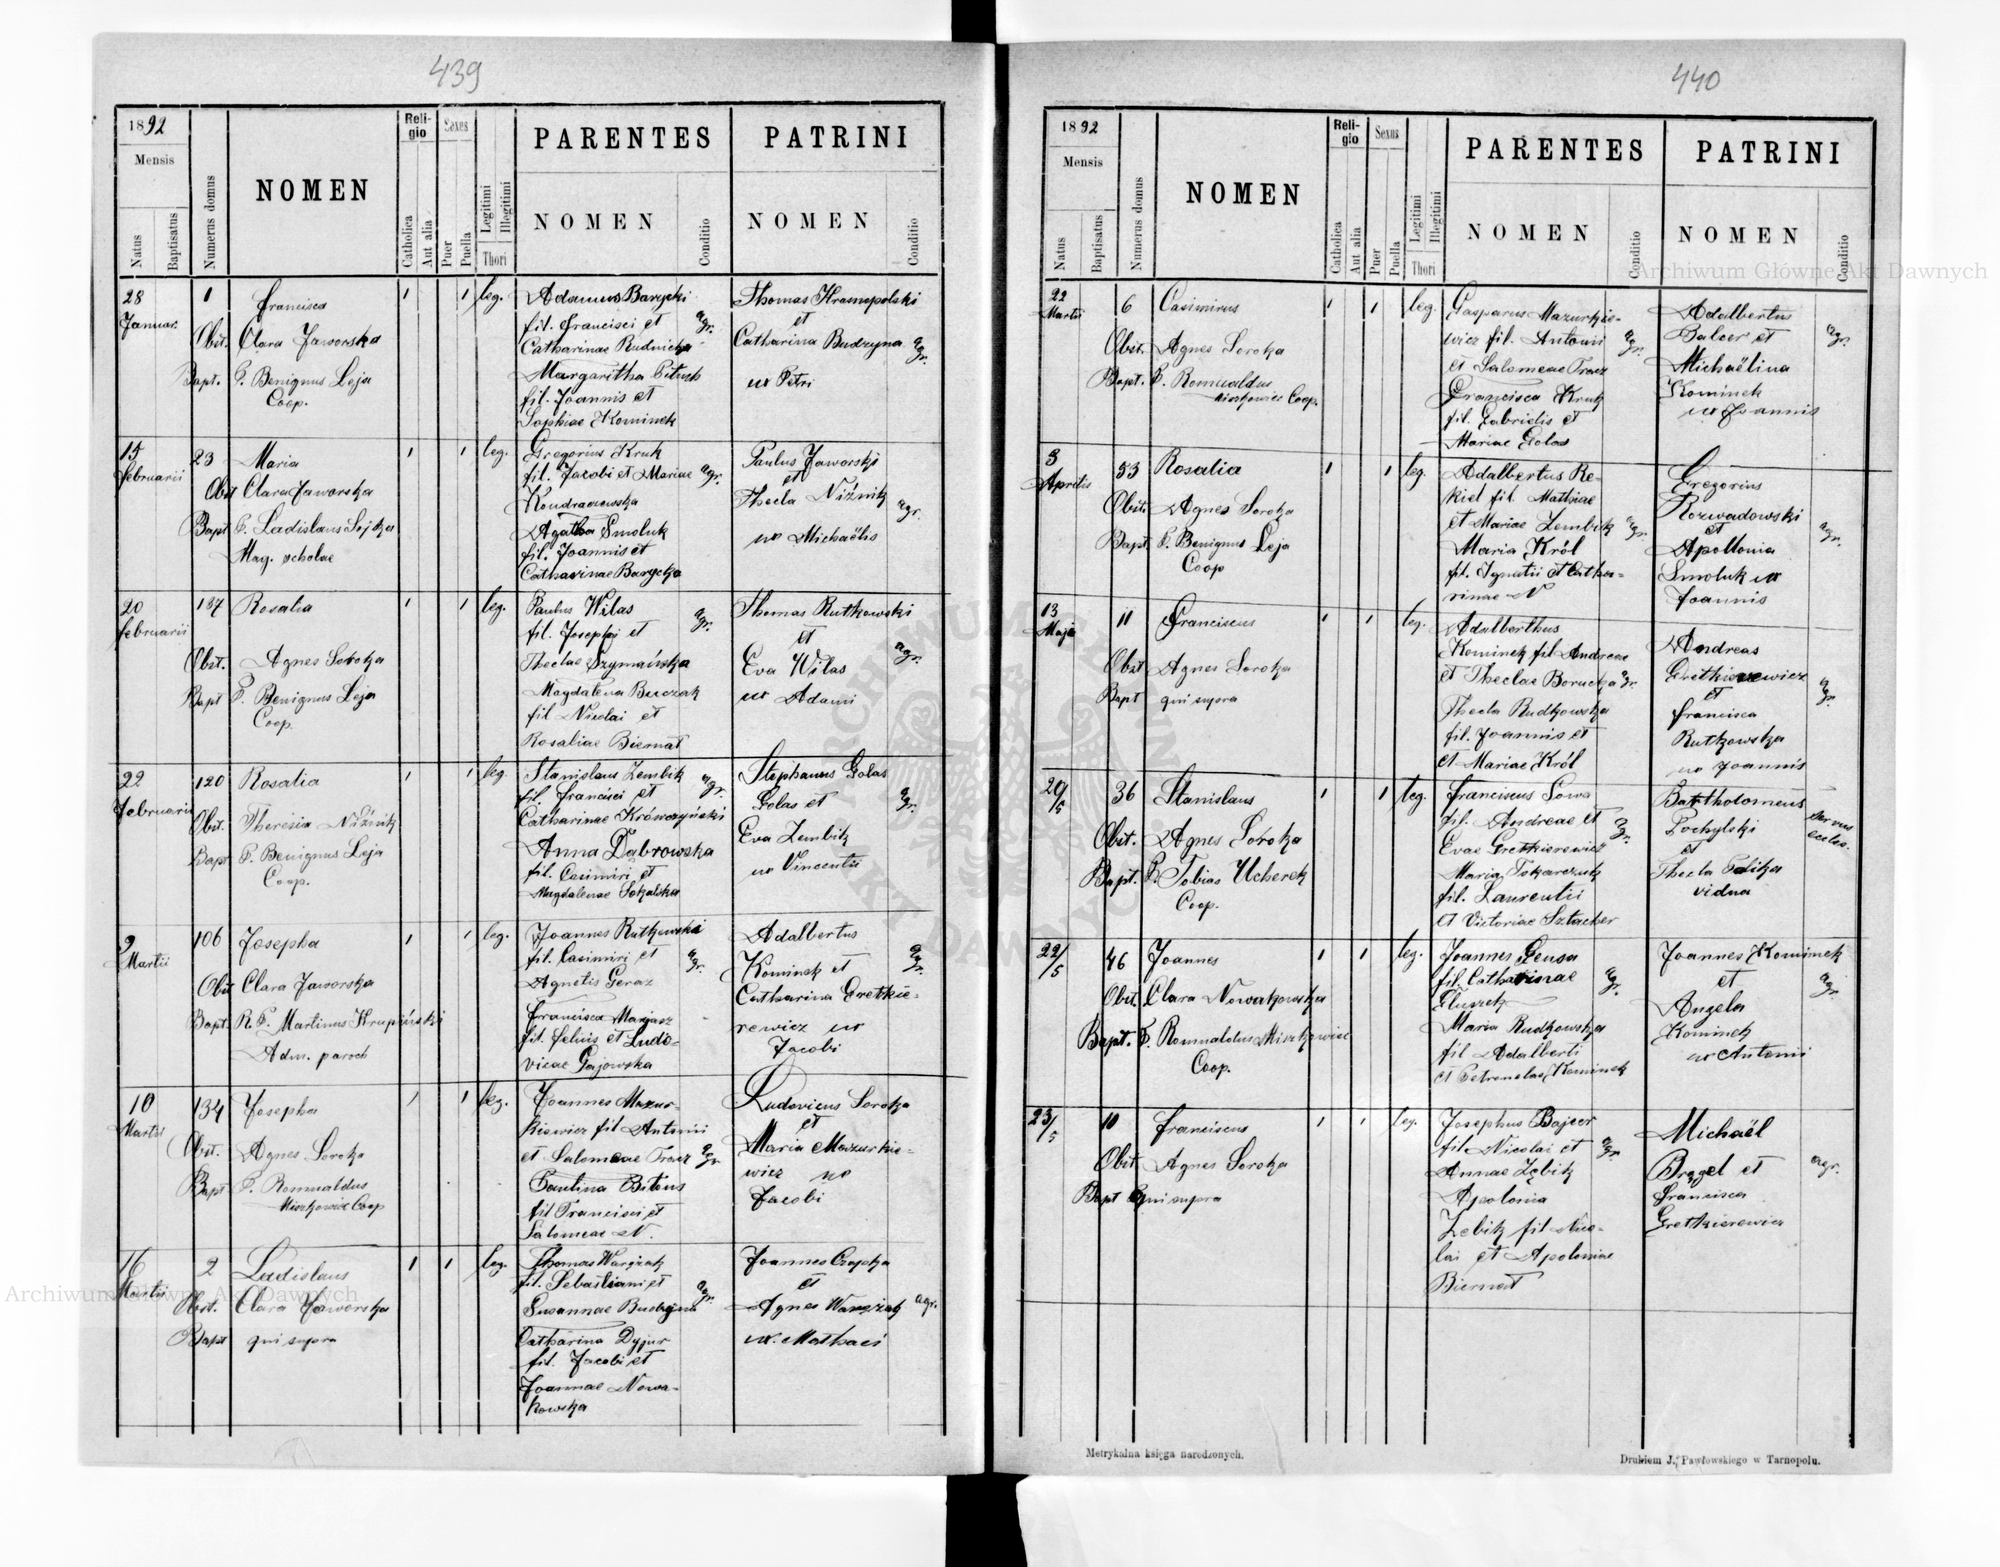 439
1892
Mensis
Natus
Baptisatus
Numerus domus
NOMEN
Religio
Catholica
Aut alia
Sexus
Puer
Puella
Legitimi
Illegitimi
Thori
PARENTES
NOMEN
Conditio
PATRINI
NOMEN
Conditio
28 Januar. 1 Francisca 1 1 leg.
Obst. Clara Jaworska
Bapt. P. Benignus Leja
Coop.
Adamus Barycki
fil. Francisci et agr.
Catharinae Rudnicka
Margaritha Pituch
fil. Joannis et
Sophiae Kominek
Thomas Hramopolski
et
Catharina Budzyna agr.
ux Petri
15 Februarii 23 Maria 1 1 leg.
Obst Clara Jaworska
Bapt P. Ladislaus Lejka
Mag. scholae
Gregorius Kruk
fil. Jacobi et Mariae agr.
Kondraczewska
Agatha Smoluk
fil. Joannis et
Catharinae Barycka
Paulus Jaworski
et
Thecla Niżnik agr.
ux Michaëlis
20 Februarii 137 Rosalia 1 1 leg.
Obst. Agnes Soroka
Bapt P. Benignus Leja
Coop.
Paulus Wilas agr.
fil. Josephi et
Theclae Szymańska
Magdalena Burczak
fil Nicolai et
Rosaliae Biernat
Thomas Rutkowski
et agr.
Eva Wilas
ux Adami
22 Februarii 120 Rosalia 1 1 leg.
Obst. Theresia Niżnik
Bapt P. Benignus Leja
Coop.
Stanislaus Zembik agr.
fil. Francisci et
Catharinae Krówczyński
Anna Dąbrowska
fil. Casimiri et
Magdalenae Sokalska
Stephanus Golas
Golas et agr.
Eva Zembik
ux Vincentii
9 Martii 106 Josepha 1 1 leg.
Obst Clara Jaworska
Bapt. R. P. Martinus Krupiński
Adm. paroch
Joannes Rutkowski
fil. Casimiri et agr.
Agnetis Geraz
Francisca Marjasz
fil. Felicis et Ludo-
vicae Gajowska
Adalbertus
Kominek et agr.
Catharina Gretkie-
rewicz ux
Jacobi
10 Martii 134 Josepha 1 1 leg.
Obst. Agnes Soroka
Bapt P. Romualdus
Miszkowicz Coop
Joannes Mazur-
kiewicz fil Antonii
et Salomeae Tracz agr.
Paulina Bitous
fil Francisci et
Salomeae N.
Ludovicus Soroka
et
Maria Mazurkie-
wicz ux
Jacobi
16 Martii 2 Ladislaus 1 1 leg.
Obst. Clara Jaworska
Bapt qui supra
Thomas Wargzak
fil. Sebastiani et agr.
Susannae Budzyna
Catharina Dyjur
fil. Jacobi et
Joannae Nowa-
kowska
Joannes Czapka
et
Agnes Wargzak agr.
ux. Mathaei
440
1892
Mensis
Natus
Baptisatus
Numerus domus
NOMEN
Religio
Catholica
Aut alia
Sexus
Puer
Puella
Legitimi
Illegitimi
Thori
PARENTES
NOMEN
Conditio
PATRINI
NOMEN
Conditio
22 Martii 6 Casimirus 1 1 leg.
Obst. Agnes Soroka
Bapt. P. Romualdus
Miszkowicz Coop.
Gasparus Mazurkie-
wicz fil. Antonii agr.
et Salomeae Tracz
Francisca Kruk
fil. Gabrielis et
Mariae Golas
Adalbertus
Balcer et agr.
Michaëlina
Kominek
ux Joannis
3 Aprilis 53 Rosalia 1 1 leg.
Obst. Agnes Soroka
Bapt. P. Benignus Leja
Coop
Adalbertus Re-
kiel fil. Mathiae
et Mariae Zembik agr.
Maria Król
fil. Ignatii et Catha-
rinae N
Gregorius
Rozwadowski
et agr.
Apollonia
Smoluk ux
Joannis
13 Maja 11 Franciscus 1 1 leg.
Obst Agnes Soroka
Bapt qui supra
Adalberthus
Kominek fil Andreae
et Theclae Borucka agr.
Thecla Rudkowska
fil. Joannis et
et Mariae Król
Andreas
Gretkierewicz
et agr.
Francisca
Rutkowska
ux Joannis
20/5 36 Stanislaus 1 1 leg.
Obst. Agnes Soroka
Bapt. P. Tobias Ucherek
Coop.
Franciscus Sowa
fil. Andreae et agr.
Evae Gretkierewicz
Maria Tokarczuk
fil. Laurentii
et Victoriae Sztacher
Bartholomeus
Pochylski servus eccles.
et
Thecla Palika
vidua
22/5 46 Joannes 1 1 leg.
Obst. Clara Nowakowska
Bapt. P. Romualdus Miszkowicz
Coop.
Joannes Geusa
fil. Catharinae agr.
Głuszek
Maria Rudkowska
fil Adalberti
et Petronelae Kominek
Joannes Kominek
et agr.
Angela
Kominek
ux Antonii
23/5 10 Franciscus 1 1 leg.
Obst Agnes Soroka
Bapt qui supra
Josephus Bajcer
fil. Nicolai et agr.
Annae Zębik
Apolonia
Zebik fil Nico-
lai et Apoloniae
Biernat
Michaël
Brągel et agr.
Francisca
Gretkierewicz
Metrykalna księga narodzonych.
Drukiem J. Pawłowskiego w Tarnopolu.
Archiwum Główne Akt Dawnych
Archiwum Główne Akt Dawnych
ARCHIWUM GŁÓWNE AKT DAWNYCH